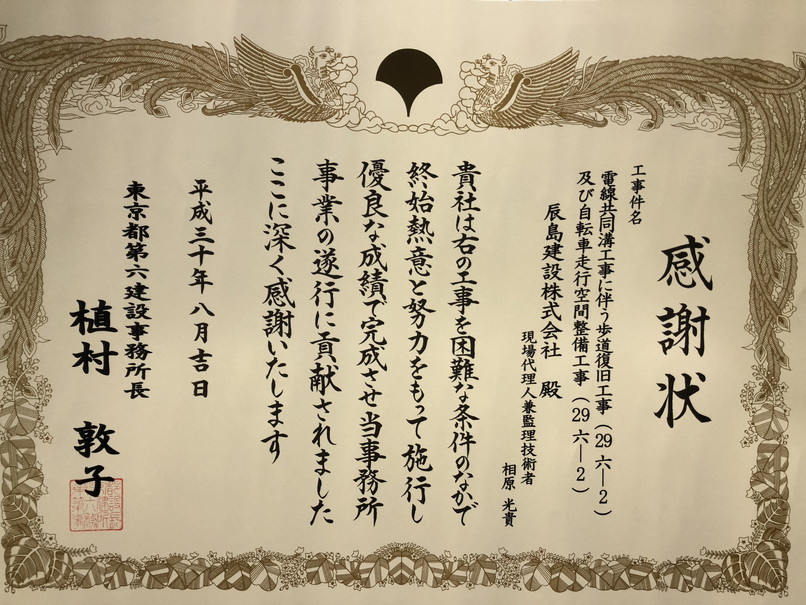 感謝状
工事件名
電線共同溝工事に伴う歩道復旧工事（29 六―2）
及び自転車走行空間整備工事（29 六―2）
辰島建設株式会社 殿
現場代理人兼監理技術者
相原 光貴
貴社は右の工事を困難な条件のなかで
終始熱意と努力をもって施行し
優良な成績で完成させ当事務所
事業の遂行に貢献されました
ここに深く感謝いたします
平成三十年八月吉日
東京都第六建設事務所長
植村 敦子